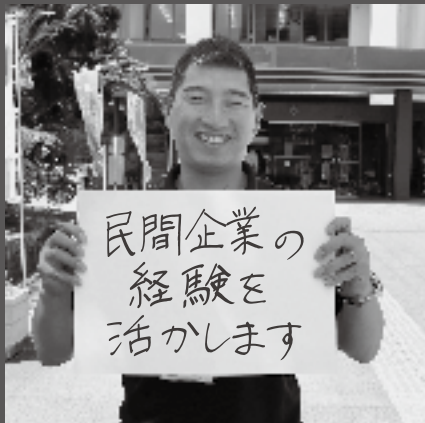 民間企業の
経験を
活かします